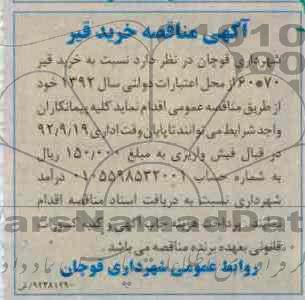 آگهی مناقصه خرید قیر
شهرداری قوچان در نظر دارد نسبت به خرید قیر
۶۰*۷۰ از محل اعتبارات دولتی سال ۱۳۹۲ خود
از طریق مناقصه عمومی اقدام نماید کلیه پیمانکاران
واجد شرایط می توانند تا پایان وقت اداری ۹۲/۹/۱۹
در قبال فیش واریزی به مبلغ ۱۵۰/۰۰۰ ریال
به شماره حساب ۰۱۰۵۵۹۸۵۳۲۰۰۱ درآمد
شهرداری نسبت به دریافت اسناد مناقصه اقدام
نمایند. پرداخت هزینه چاپ آگهی و کلیه کسورات
قانونی بعهده برنده مناقصه می باشد.
روابط عمومی شهرداری قوچان
۹۲۳۸۱۲۹۰/ف
ParsNamadData